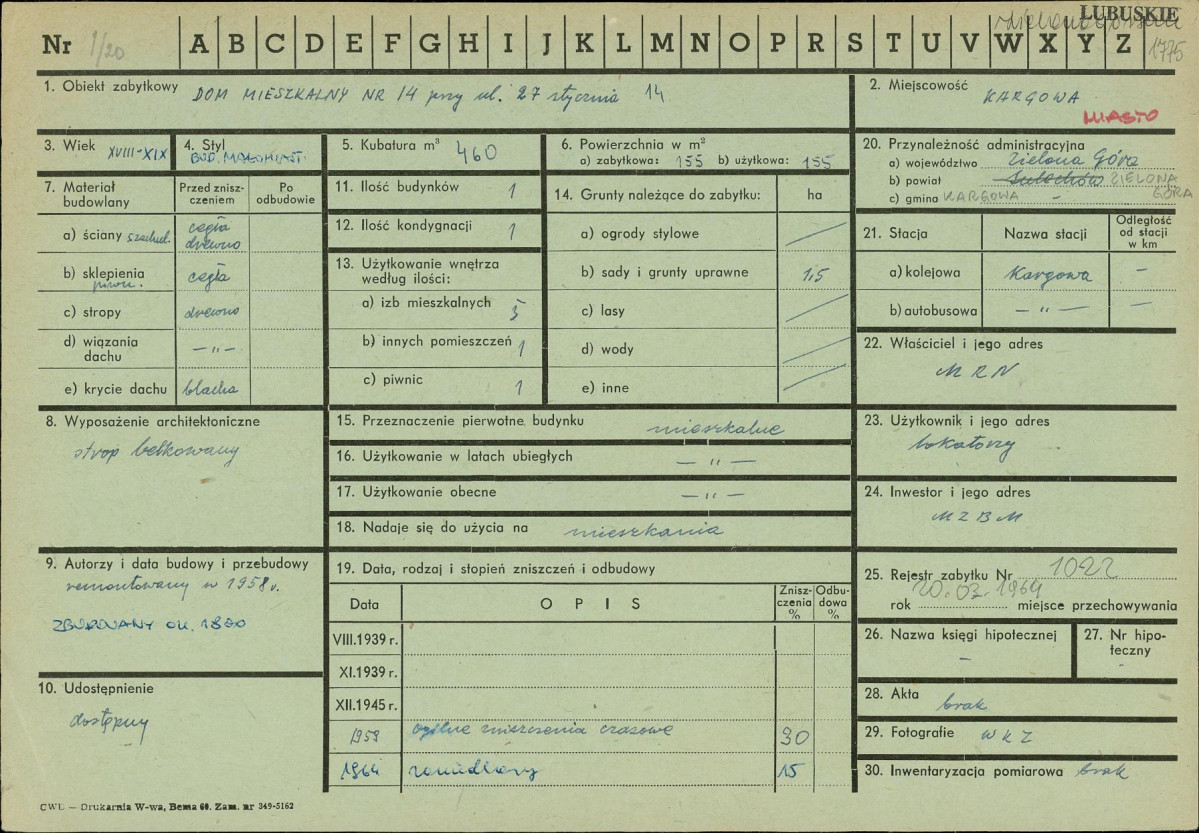 LUBUSKIE
Nr 1/20 A B C D E F G H I J K L M N O P R S T U V W X Y Z 1775
1. Obiekt zabytkowy DOM MIESZKALNY NR 14 przy ul. 27 stycznia 14
2. Miejscowość KARGOWA
MIASTO
3. Wiek XVIII-XIX
4. Styl BUD. MAŁOMIAST.
5. Kubatura m³ 460
6. Powierzchnia w m²
a) zabytkowa: 155 b) użytkowa: 155
20. Przynależność administracyjna
a) województwo Zielona Góra
b) powiat Sulechów ZIELONA GÓRA
c) gmina KARGOWA -
7. Materiał budowlany
Przed zniszczeniem
Po odbudowie
a) ściany szachul. cegła drewno
b) sklepienia piwn. cegła
c) stropy drewno
d) wiązania dachu — „ —
e) krycie dachu blacha
11. Ilość budynków 1
12. Ilość kondygnacji 1
13. Użytkowanie wnętrza według ilości:
a) izb mieszkalnych 5
b) innych pomieszczeń 1
c) piwnic 1
14. Grunty należące do zabytku: ha
a) ogrody stylowe
b) sady i grunty uprawne 1,5
c) lasy
d) wody
e) inne
21. Stacja
Nazwa stacji
Odległość od stacji w km
a) kolejowa Kargowa —
b) autobusowa — „ — —
22. Właściciel i jego adres
MRN
8. Wyposażenie architektoniczne
strop belkowany
15. Przeznaczenie pierwotne budynku mieszkalne
16. Użytkowanie w latach ubiegłych — „ —
17. Użytkowanie obecne — „ —
18. Nadaje się do użycia na mieszkania
23. Użytkownik i jego adres
lokatorzy
24. Inwestor i jego adres
MZBM
9. Autorzy i data budowy i przebudowy
remontowany w 1958 r.
ZBUDOWANY OK. 1800
10. Udostępnienie
dostępny
19. Data, rodzaj i stopień zniszczeń i odbudowy
Data
OPIS
Zniszczenia %
Odbudowa %
VIII.1939 r.
XI.1939 r.
XII.1945 r.
1959 ogólne zniszczenia czasowe 30
1964 zaniedbany 15
25. Rejestr zabytku Nr 1022
rok 20.03.1964 miejsce przechowywania
26. Nazwa księgi hipotecznej
-
27. Nr hipoteczny
-
28. Akta brak
29. Fotografie WKZ
30. Inwentaryzacja pomiarowa brak
CWL — Drukarnia W-wa, Bema 60. Zam. nr 349-5162